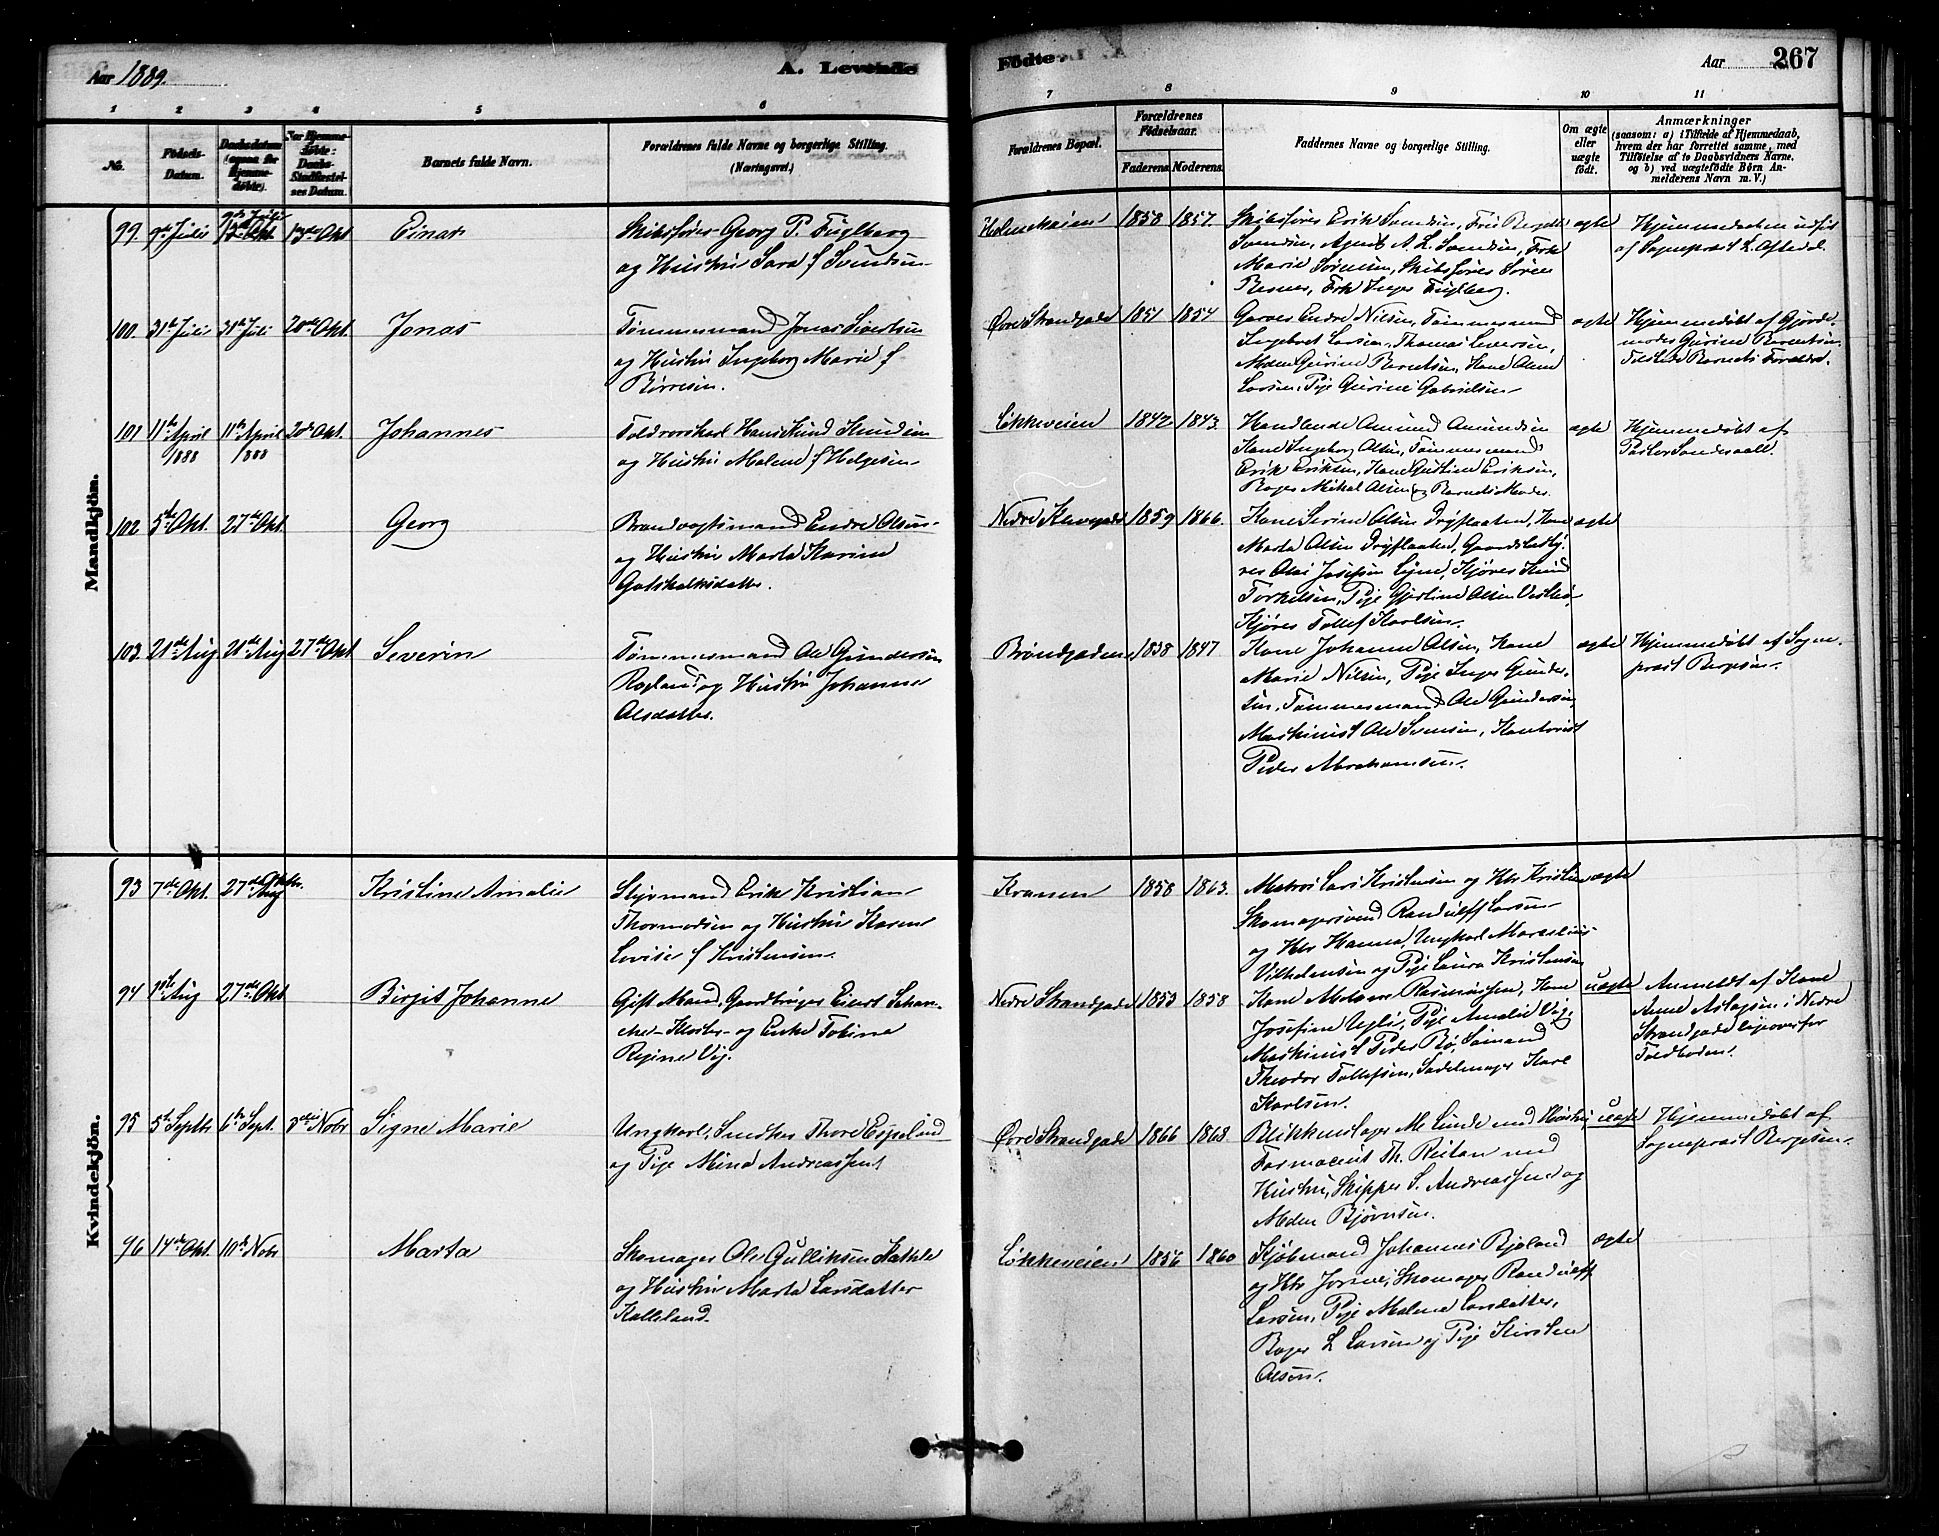 Aar 1889.
A. Levende
Fødte
Aar
267
1 2 3 4 5 6 7 8 9 10 11
No.
Fødsels-Datum.
Daabsdatum (ogsaa for Hjemme-døbte).
For Hjemme-døbte: Daabs-Stadfæstel-ses Datum.
Barnets fulde Navn.
Forældrenes fulde Navne og borgerlige Stilling. (Næringsvei.)
Forældrenes Bopæl.
Forældrenes Fødselsaar.
Faderens.
Moderens.
Faddernes Navne og borgerlige Stilling.
Om ægte eller uægte født.
Anmærkninger
(saasom: a) i Tilfælde af Hjemmedaab,
hvem der har forrettet samme, med
Tilføielse af to Daabsvidners Navne,
og b) ved uægtefødte Børn An-
melderens Navn m. V.)
Mandkjøn.
99. 9de Juli 9de Juli 13de Okt 13de Okt Einar
Skibsfører Georg P. Fuglberg
og Hustru Sara f Svendsen
Holmeveien 1858 1857.
Skibsfører Erik Svendsen, Fru Bergitte
Svendsen, Agent A. L. Svendsen, Frk
Marie Sørensen, Skibsfører Sören
Berner, Frk Inger Fuglberg.
ægte
Hjemmedaaben udført
af Sognepræst L. Oftedal.
100. 31te Juli 31te Juli 20de Okt. Jonas
Tømmermand Jonas Sivertsen
og Hustru Ingeborg Marie f
Børresen.
Øvre Strandgade 1851 1854
Garver Endre Nilsen, Tømmermand
Ingebret Larsen, Thomas Iversen,
Mdm Gurine Berntsen, Kone Oline
Larsen, Pige Gurine Gabrielsen
ægte
Hjemmedøbt af Gjorde-
moder Gurine Berentsen.
Tilstede Barnets Forældre.
101 11te April 1888 11te April 1888 20de Okt. Johannes
Toldrorskarl Hans Knud Knudsen
og Hustru Malene f Helgesen
Løkkeveien 1842 1843.
Handlende Amund Amundsen
Kone Ingeborg Olsen, Tømmermand
Erik Eriksen, Kone Gustine Eriksen,
Bager Mikal Olsen og Barnets Moder.
ægte
Hjemmedøbt af
Pastor Sandsaall.
102 5te Okt. 27de Okt. Georg
Brandvagtsmand Endre Olsen
og Hustru Marta Karine
Gotskalksdatter.
Nedre Klevegade 1859 1866.
Kone Serine Olsen Dysflaaten, Kone
Marta Olsen Dysflaaten, Gaardsbesty-
rer Olai Josefsen Lyne, Kjører Knud
Torkelsen, Pige Gjertine Olsen
Kjører Tollef Karlsen.
ægte
103. 21de Aug 21de Aug 27de Okt Severin
Tømmermand Ole Gundersen
Rogland og Hustru Johanne
Olsdatter.
Brøndgaden 1838 1847
Kone Johanne Olsen, Kone
Marie Nilsen, Pige Inger Gunder-
sen, Tømmermand Ole Gundersen,
Maskinist Ole Svensen,
Peder Abrahamsen.
ægte
Hjemmedøbt af Sogne-
præst Bergesen.
Kvindekjøn.
93 7de Okt. 27de Oktbr. Aug Kristine Amalie
Styrmand Erik Kristian
Thormodsen og Hustru Karen
Lovise f Kristensen.
Kranen 1858 1863.
Matros Lars Kristensen og Htr Kristine
Skomagersvend Randulff Larsen
og Htr Hanna, Ungkarl Marselius
Vilhelmsen og Pige Laura Kristensen
ægte
94 10de Aug 27de Okt Birgit Johanne
Gift Mand, Gaardbruger Eivert Johan-
nes Kloster og Enke Tobine
Regine Vig.
Nedre Strandgade 1853 1858
Kone Malene Rasmussen, Kone
Josefine Ugløs, Pige Amalie Vig,
Maskinist Peder Bø, Sömand
Theodor Tollefsen, Sadelmager Karl
Karlsen.
uægte
Anmeldt af Kone
Anne Aslagsen i Nedre
Strandgade ligeoverfor
Toldboden.
95 5te Septbr 6te Sept. 3die Novbr Signe Marie
Ungkarl, Snedker Thore Espeland
og Pige Mina Andreassen
Øvre Strandgade 1866 1868
Blikkenslager M. Lunde med Hustru
Farmaceut Th. Reitan med
Hustru, Skipper S. Andreassen og
Mdm Bjørnsen.
uægte
Hjemmedøbt af
Sognepræst Bergesen.
96 14de Okt. 10de Novbr Marta
Skomager Ole Gulliksen
og Hustru Marta Larsdatter
Kalleland.
Løkkeveien 1856 1860
Kjøbmand Johannes Bjeland
og Htr Jorine, Skomager Randulff
Larsen, Pige Malene Larsdatter,
Bager L Larsen og Pige Kirsten
Olsen.
ægte